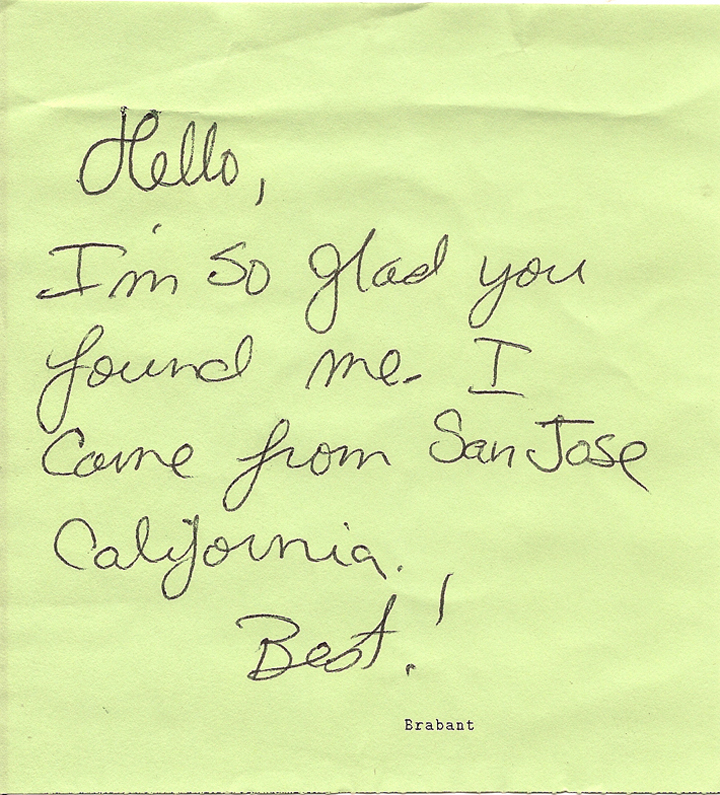 Hello,
I'm so glad you
found me. I
come from San Jose
California.
Best!
Brabant